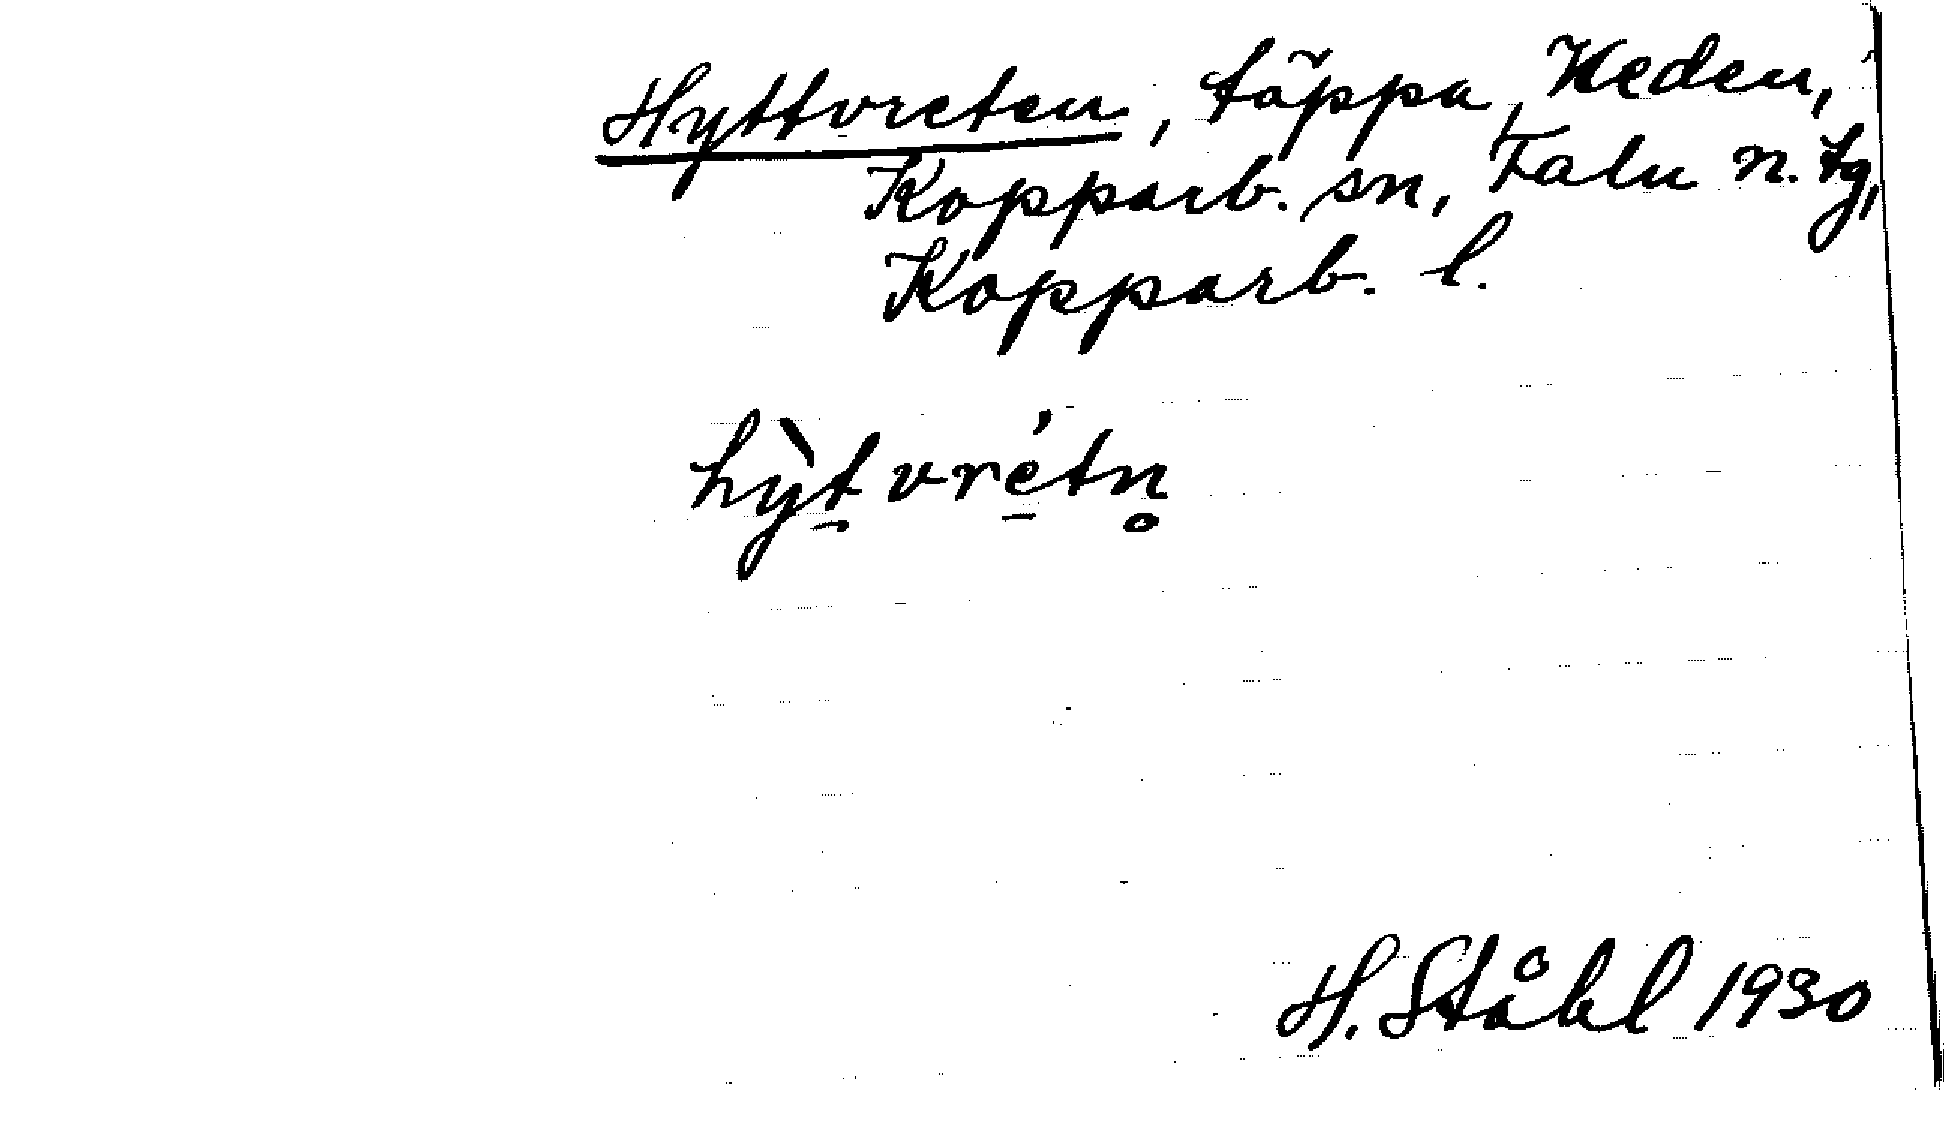 Hyttvreten, täppa, Heden,
Kopparb. sn, Falu n. tg,
Kopparb. l.
hỳt̠vré̠tn̥
H. Ståhl 1930